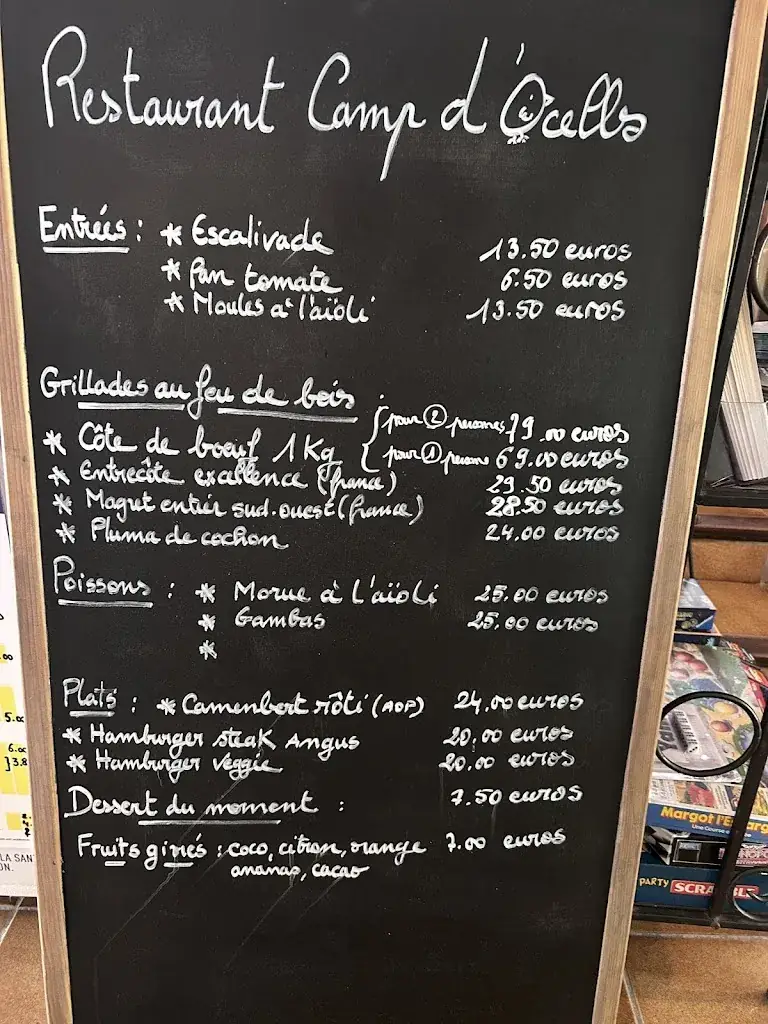 Restaurant Camp d'Ocells
Entrées : * Escalivade 13.50 euros
* Pan tomate 6.50 euros
* Moules à l'aïoli 13.50 euros
Grillades au feu de bois :
* Côte de boeuf 1Kg { pour ② personnes 79.00 euros
pour ① persone 69.00 euros
* Entrecôte excellence (france) 29.50 euros
* Magret entier sud.ouest (france) 28.50 euros
* Pluma de cochon 24.00 euros
Poissons : * Morue à l'aïoli 25.00 euros
* Gambas 25.00 euros
*
Plats : * Camembert rôti (AOP) 24.00 euros
* Hamburger steak Angus 20.00 euros
* Hamburger veggie 20.00 euros
Dessert du moment : 7.50 euros
Fruits givrés : coco, citron, orange 7.00 euros
ananas, cacao
5.00
6.00
LA SAN
ON.
Margot l'E
Une Course
PARTY SCRABBLE